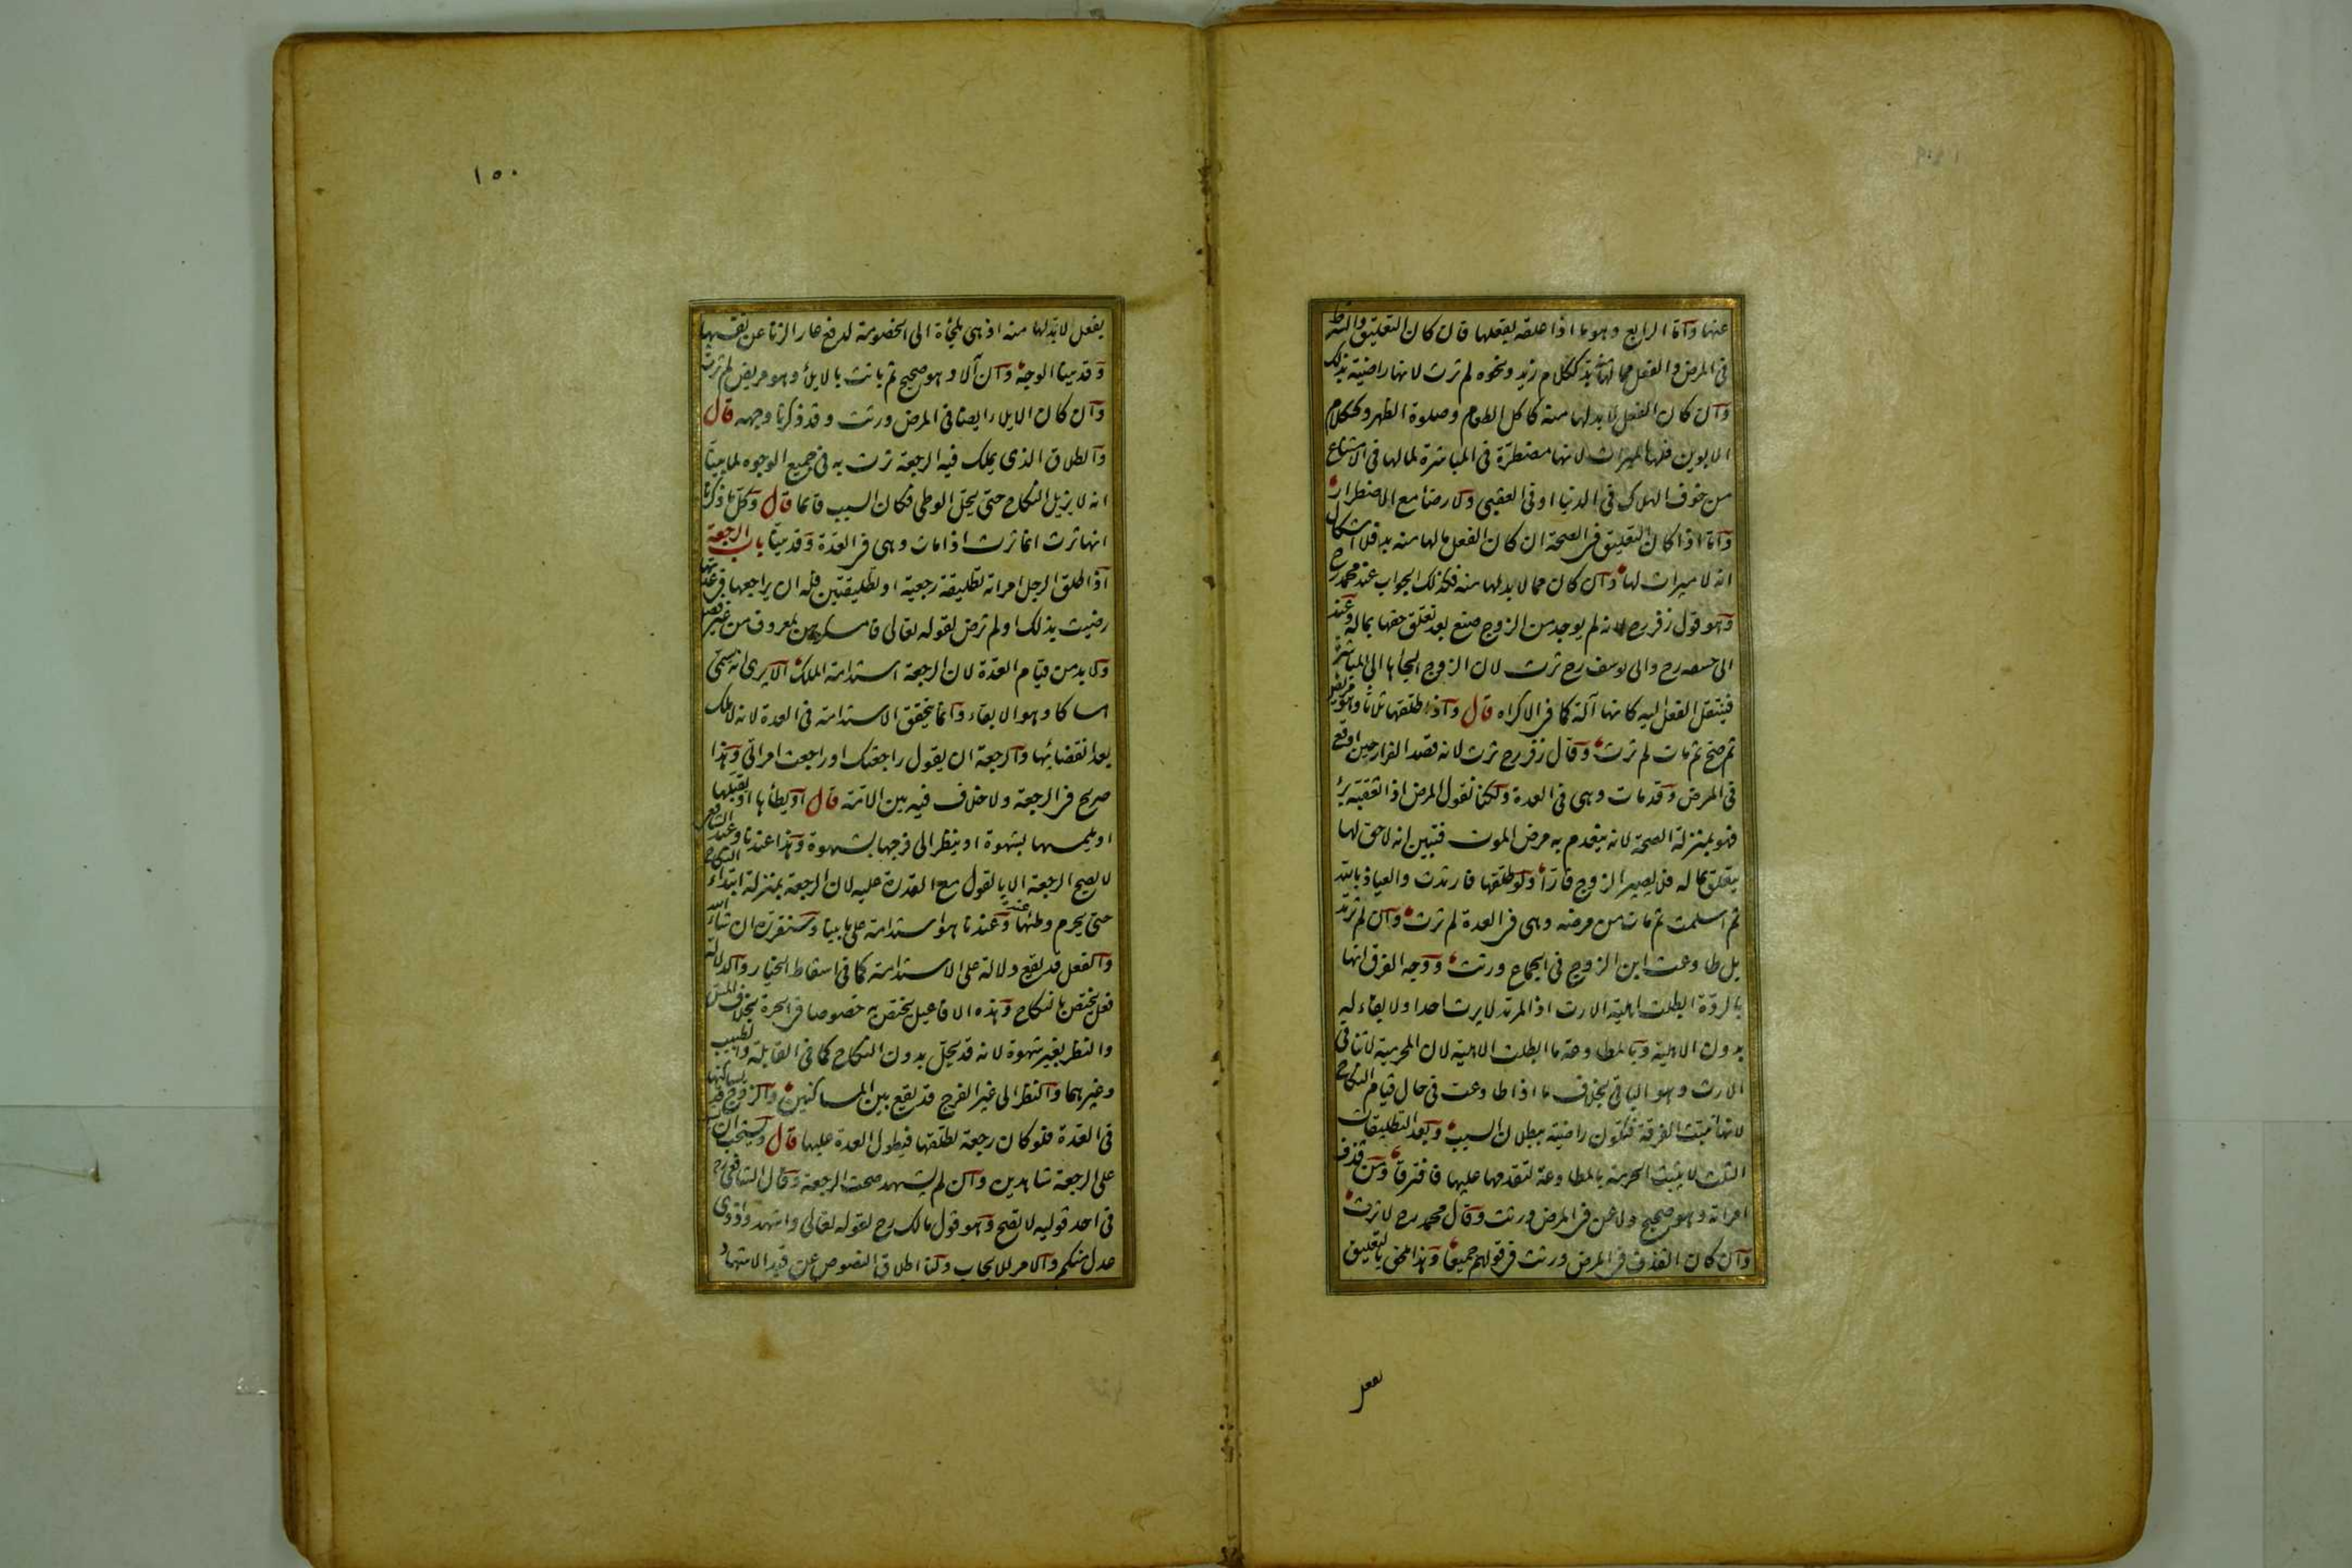 عنها وأما الرابع وهو ما اذا علقه بفعلها فان كان التعليق والشرط
فى المرض والفعل مما لها منه بد ككلام زيد ونحوه لم ترث لانها راضية بذلك
وان كان الفعل لا بد لها منه كاكل الطعام وصلوة الظهر وكلام
الابوين فلها الميراث لانها مضطرة فى المباشرة لما لها فى الامتناع
من خوف الهلاك فى الدنيا او فى العقبى ولا رضا مع الاضطرار
وأما اذا كان التعليق فى الصحة ان كان الفعل مما لها منه بد فلا اشكال
انه لا ميراث لها وان كان مما لا بد لها منه فكذلك الجواب عند محمد رح
وهو قول زفر رح لانه لم يوجد من الزوج صنع بعد تعلق حقها بماله وعند
ابى حنيفه رح وابى يوسف رح ترث لان الزوج الجأها الى المباشرة
فينتقل الفعل اليه كانها آلة كما فى الاكراه قال واذا طلقها ثلثا وهو مريض
ثم صح ثم مات لم ترث وقال زفر رح ترث لانه قصد الفرار حين اوقع
فى المرض وقد مات وهى فى العدة ولكنا نقول المرض اذا تعقبه برء
فهو بمنزلة الصحة لانه ينعدم به مرض الموت فتبين انه لا حق لها
يتعلق بماله فلا يصير الزوج فارا ولو طلقها فارتدت والعياذ بالله
ثم اسلمت ثم مات من مرضه وهى فى العدة لم ترث وان لم ترتد
بل طاوعت ابن الزوج فى الجماع ورثت ووجه الفرق انها
بالردة ابطلت اهلية الارث اذ المرتد لا يرث احدا ولا بقاء له
بدون الاهلية وبالمطاوعة ما ابطلت الاهلية لان المحرمية لا تنافى
الارث وهو الباقى بخلاف ما اذا طاوعت فى حال قيام النكاح
لانها تثبت الفرقة فتكون راضية ببطلان السبب وبعد التطليقات
الثلث لا تثبت الحرمة بالمطاوعة لتقدمها عليها فافترقا ومن قذف
امراته وهو صحيح ولاعن فى المرض ورثت وقال محمد رح لا ترث
وان كان القذف فى المرض ورثت فى قولهم جميعا وهذا ملحق بالتعليق
بفعل
١٥٠
بفعل لا بد لها منه اذ هى ملجأة الى الخصومة لدفع عار الزنا عن نفسها
وقد بينا الوجه وان آلا وهو صحيح ثم بانت بالايلاء وهو مريض لم ترث
وان كان الايلاء ايضا فى المرض ورثت وقد ذكرنا وجهه قال
والطلاق الذى يملك فيه الرجعة ترث به فى جميع الوجوه لما بينا
انه لا يزيل النكاح حتى يحل الوطى فكان السبب قائما قال وكل ما ذكرنا
انها ترث انما ترث اذا مات وهى فى العدة وقد بينا باب الرجعة
اذا طلق الرجل امراته تطليقة رجعية او تطليقتين فله ان يراجعها فى عدتها
رضيت بذلك او لم ترض لقوله تعالى فامسكوهن بمعروف من غير فصل
ولا بد من قيام العدة لان الرجعة استدامة الملك الا يرى انه سمى
امساكا وهو الابقاء وانما يتحقق الاستدامة فى العدة لانه لا ملك
بعد انقضائها والرجعة ان يقول راجعتك او راجعت امراتى وهذا
صريح فى الرجعة ولا خلاف فيه بين الائمة قال او يطأها او يقبلها
او يلمسها بشهوة او ينظر الى فرجها بشهوة وهذا عندنا وعند الشافعى
لا يصح الرجعة الا بالقول مع القدرة عليه لان الرجعة بمنزلة ابتداء النكاح
حتى يحرم وطئها عنده وعندنا هو استدامة على ما بينا وسنقرره ان شاء الله
والفعل قد يقع دلالة على الاستدامة كما فى اسقاط الخيار والدلالة
فعل يختص بالنكاح وهذه الافاعيل يختص به خصوصا فى الحرة بخلاف المس
والنظر بغير شهوة لانه قد يحل بدون النكاح كما فى القابلة والطبيب
وغيرهما والنظر الى غير الفرج قد يقع بين المساكنين والزوج قد يساكنها
فى العدة فلو كان رجعة لطلقها فيطول العدة عليها قال ويستحب ان
على الرجعة شاهدين وان لم يشهد صحت الرجعة وقال الشافعى رح
فى احد قوليه لا تصح وهو قول مالك رح لقوله تعالى واشهدوا ذوى
عدل منكم والامر للايجاب ولنا اطلاق النصوص عن قيد الاشهاد